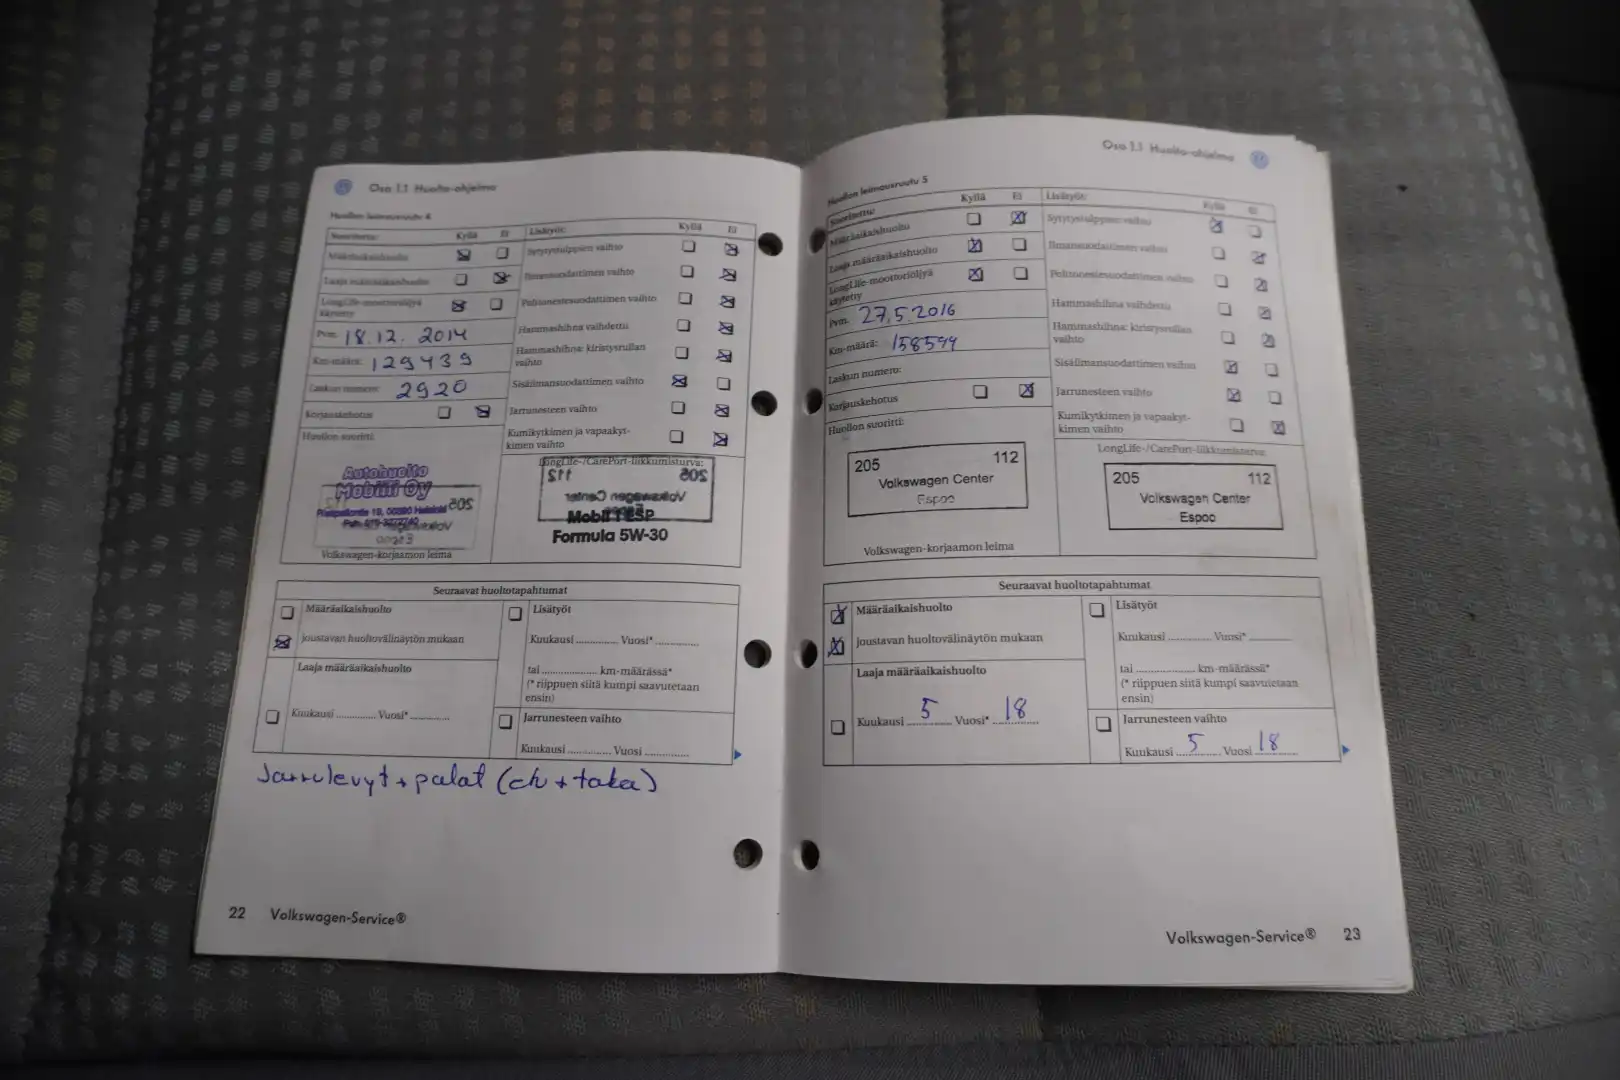 Osa 1.1 Huolto-ohjelma
Huollon leimausruutu 4
Suoritettu: Kyllä Ei Lisätyöt: Kyllä Ei
Määräaikaishuolto
Laaja määräaikaishuolto
LongLife-moottoriöljyä
käytetty
Pvm: 18.12. 2014
Km-määrä: 129439
Laskun numero: 2920
Korjauskehotus
Huollon suoritti:
Sytytystulppien vaihto
Ilmansuodattimen vaihto
Polttonestesuodattimen vaihto
Hammashihna vaihdettu
Hammashihna: kiristysrullan
vaihto
Sisäilmansuodattimen vaihto
Jarrunesteen vaihto
Kumikytkimen ja vapaakyt-
kimen vaihto
LongLife-/CarePort-liikkumisturva:
Autohuolto
Mobiili Oy
205 112
Volkswagen Center
Mobil 1 ESP
Formula 5W-30
Volkswagen-korjaamon leima
Seuraavat huoltotapahtumat
Määräaikaishuolto
Joustavan huoltovälinäytön mukaan
Laaja määräaikaishuolto
Kuukausi ............. Vuosi* .............
Lisätyöt
Kuukausi ............. Vuosi* .............
tai ................. km-määrässä*
(* riippuen siitä kumpi saavutetaan
ensin)
Jarrunesteen vaihto
Kuukausi ............. Vuosi .............
Jarrulevyt + palat (etu + taka)
22 Volkswagen-Service®
Osa 1.1 Huolto-ohjelma
Huollon leimausruutu 5
Suoritettu: Kyllä Ei Lisätyöt: Kyllä Ei
Määräaikaishuolto
Laaja määräaikaishuolto
LongLife-moottoriöljyä
käytetty
Pvm. 27.5.2016
Km-määrä: 158594
Laskun numero:
Korjauskehotus
Huollon suoritti:
Sytytystulppien vaihto
Ilmansuodattimen vaihto
Polttonestesuodattimen vaihto
Hammashihna vaihdettu
Hammashihna: kiristysrullan
vaihto
Sisäilmansuodattimen vaihto
Jarrunesteen vaihto
Kumikytkimen ja vapaakyt-
kimen vaihto
LongLife-/CarePort-liikkumisturva:
205 112
Volkswagen Center
Espoo
205 112
Volkswagen Center
Espoo
Volkswagen-korjaamon leima
Seuraavat huoltotapahtumat
Määräaikaishuolto
Joustavan huoltovälinäytön mukaan
Laaja määräaikaishuolto
Kuukausi 5 Vuosi* 18
Lisätyöt
Kuukausi ............. Vuosi* .............
tai ................. km-määrässä*
(* riippuen siitä kumpi saavutetaan
ensin)
Jarrunesteen vaihto
Kuukausi 5 Vuosi 18
Volkswagen-Service® 23